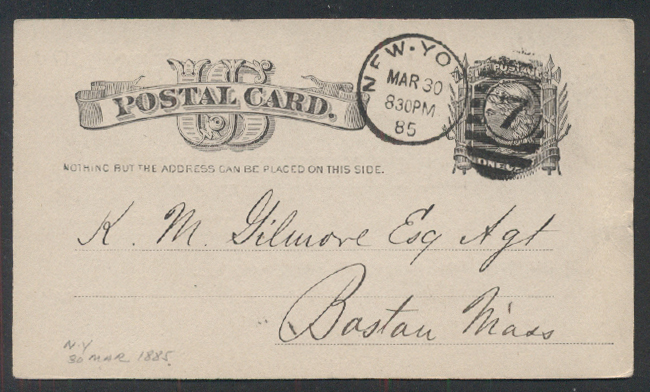 US
POSTAL CARD.
NOTHING BUT THE ADDRESS CAN BE PLACED ON THIS SIDE.
NEW-YO
MAR 30
830PM
85
7
K. M. Gilmore Esq Agt
Boston Mass
N.Y
30 MAR 1885